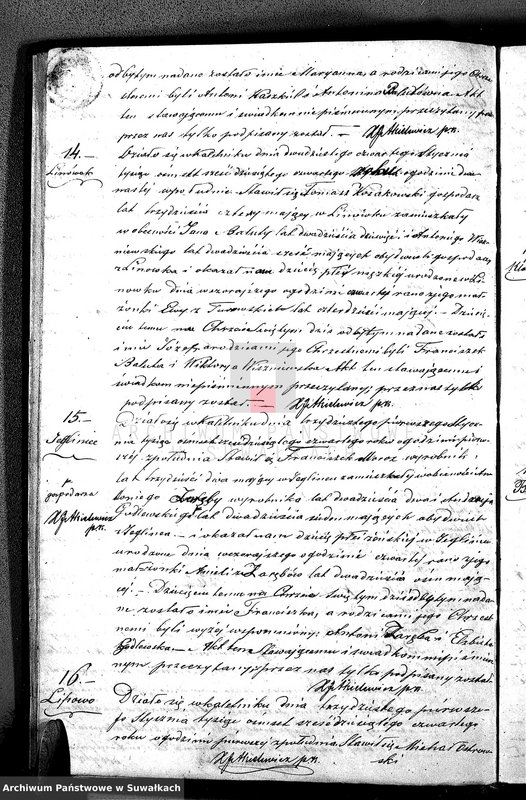 odbytym nadane zostało imie Maryanna, a rodzicami jego Chrze
stnemi byli Antoni Kaszkiel i Antonina Akt
ten stawającemu i świadkom niepiśmiennym przeczytany
przez nas tylko podpisany został. —
14. —
Linowek
Działo się w Kaletniku dnia dwudziestego czwartego Stycznia
tysiąc ośmset sześćdziesiątego czwartego roku o godzinie dwu
nastej w południe Stawił się Tomasz Kozakowski gospodarz
lat trzydzieści cztery mający w Linówku zamieszkały
w obecności Jana Batuty lat dwadzieścia dziewięć i Antoniego Wisz
niewskiego lat dwadzieścia sześć mających obydwóch gospodarzy
z Linowka i okazał nam dziecię płci męzkiej urodzone w Li
nowku dnia wczorajszego o godzinie czwartej rano z jego mał
żonki Ewy z lat czterdzieści mającej — Dziecię
ciu temu na Chrzcie świętym dziś odbytym nadane zostało
imie Józef, a rodzicami jego Chrzestnemi byli Franciszek
Batuta i Wiktorya Wiszniewska Akt ten stawającemu i
świadkom niepiśmiennym przeczytany, przez nas tylko
podpisany został. —
15. —
Jeglinec
Działo się w Kaletniku dnia trzydziestego pierwszego Stycz
nia tysiąc ośmset sześćdziesiątego czwartego roku o godzinie pierw
szej z południa Stawił się Franciszek Moroz wyrobnik
lat trzydzieści dwa mający w Jeglincu zamieszkały w obecności An
toniego Zaręby wyrobnika lat dwadzieścia dwa i Andrzeja
gospodarza
Godlewskiego lat dwadzieścia siedm mających obydwóch
z Jeglinca — i okazał nam dziecię płci żeńskiej w Jeglincu
urodzone dnia wczorajszego o godzinie czwartej rano z jego
małżonki Anieli z Zarębów lat dwadzieścia ośm mają
cej — Dziecięciu temu na Chrzcie świętym dziś odbytym nada
ne zostało imie Franciszka, a rodzicami jego Chrzest
nemi byli wyżej wspomniony Antoni Zaręba i Elżbieta
Godlewska — Akt ten stawającemu i świadkom niepiśmien
nym przeczytany przez nas tylko podpisany został
16. —
Lipowo
Działo się w Kaletniku dnia trzydziestego pierwsze
go Stycznia tysiąc ośmset sześćdziesiątego czwartego
roku o godzinie pierwszej z południa Stawił się Michał Ostrow
ski
Archiwum Państwowe w Suwałkach